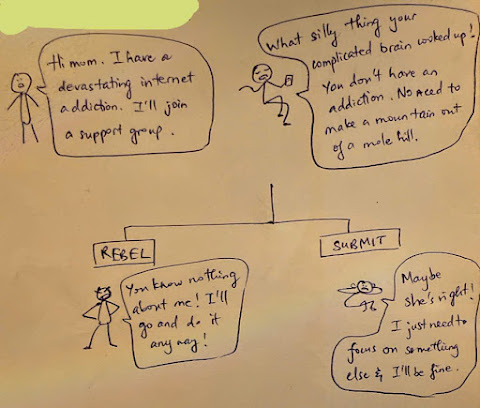 Hi mom. I have a
devastating internet
addiction. I'll join
a support group.
What silly thing your
complicated brain cooked up!
You don't have an
addiction. No need to
make a mountain out
of a mole hill.
REBEL
SUBMIT
You know nothing
about me! I'll
go and do it
any way!
Maybe
she's right!
I just need to
focus on something
else & I'll be fine.